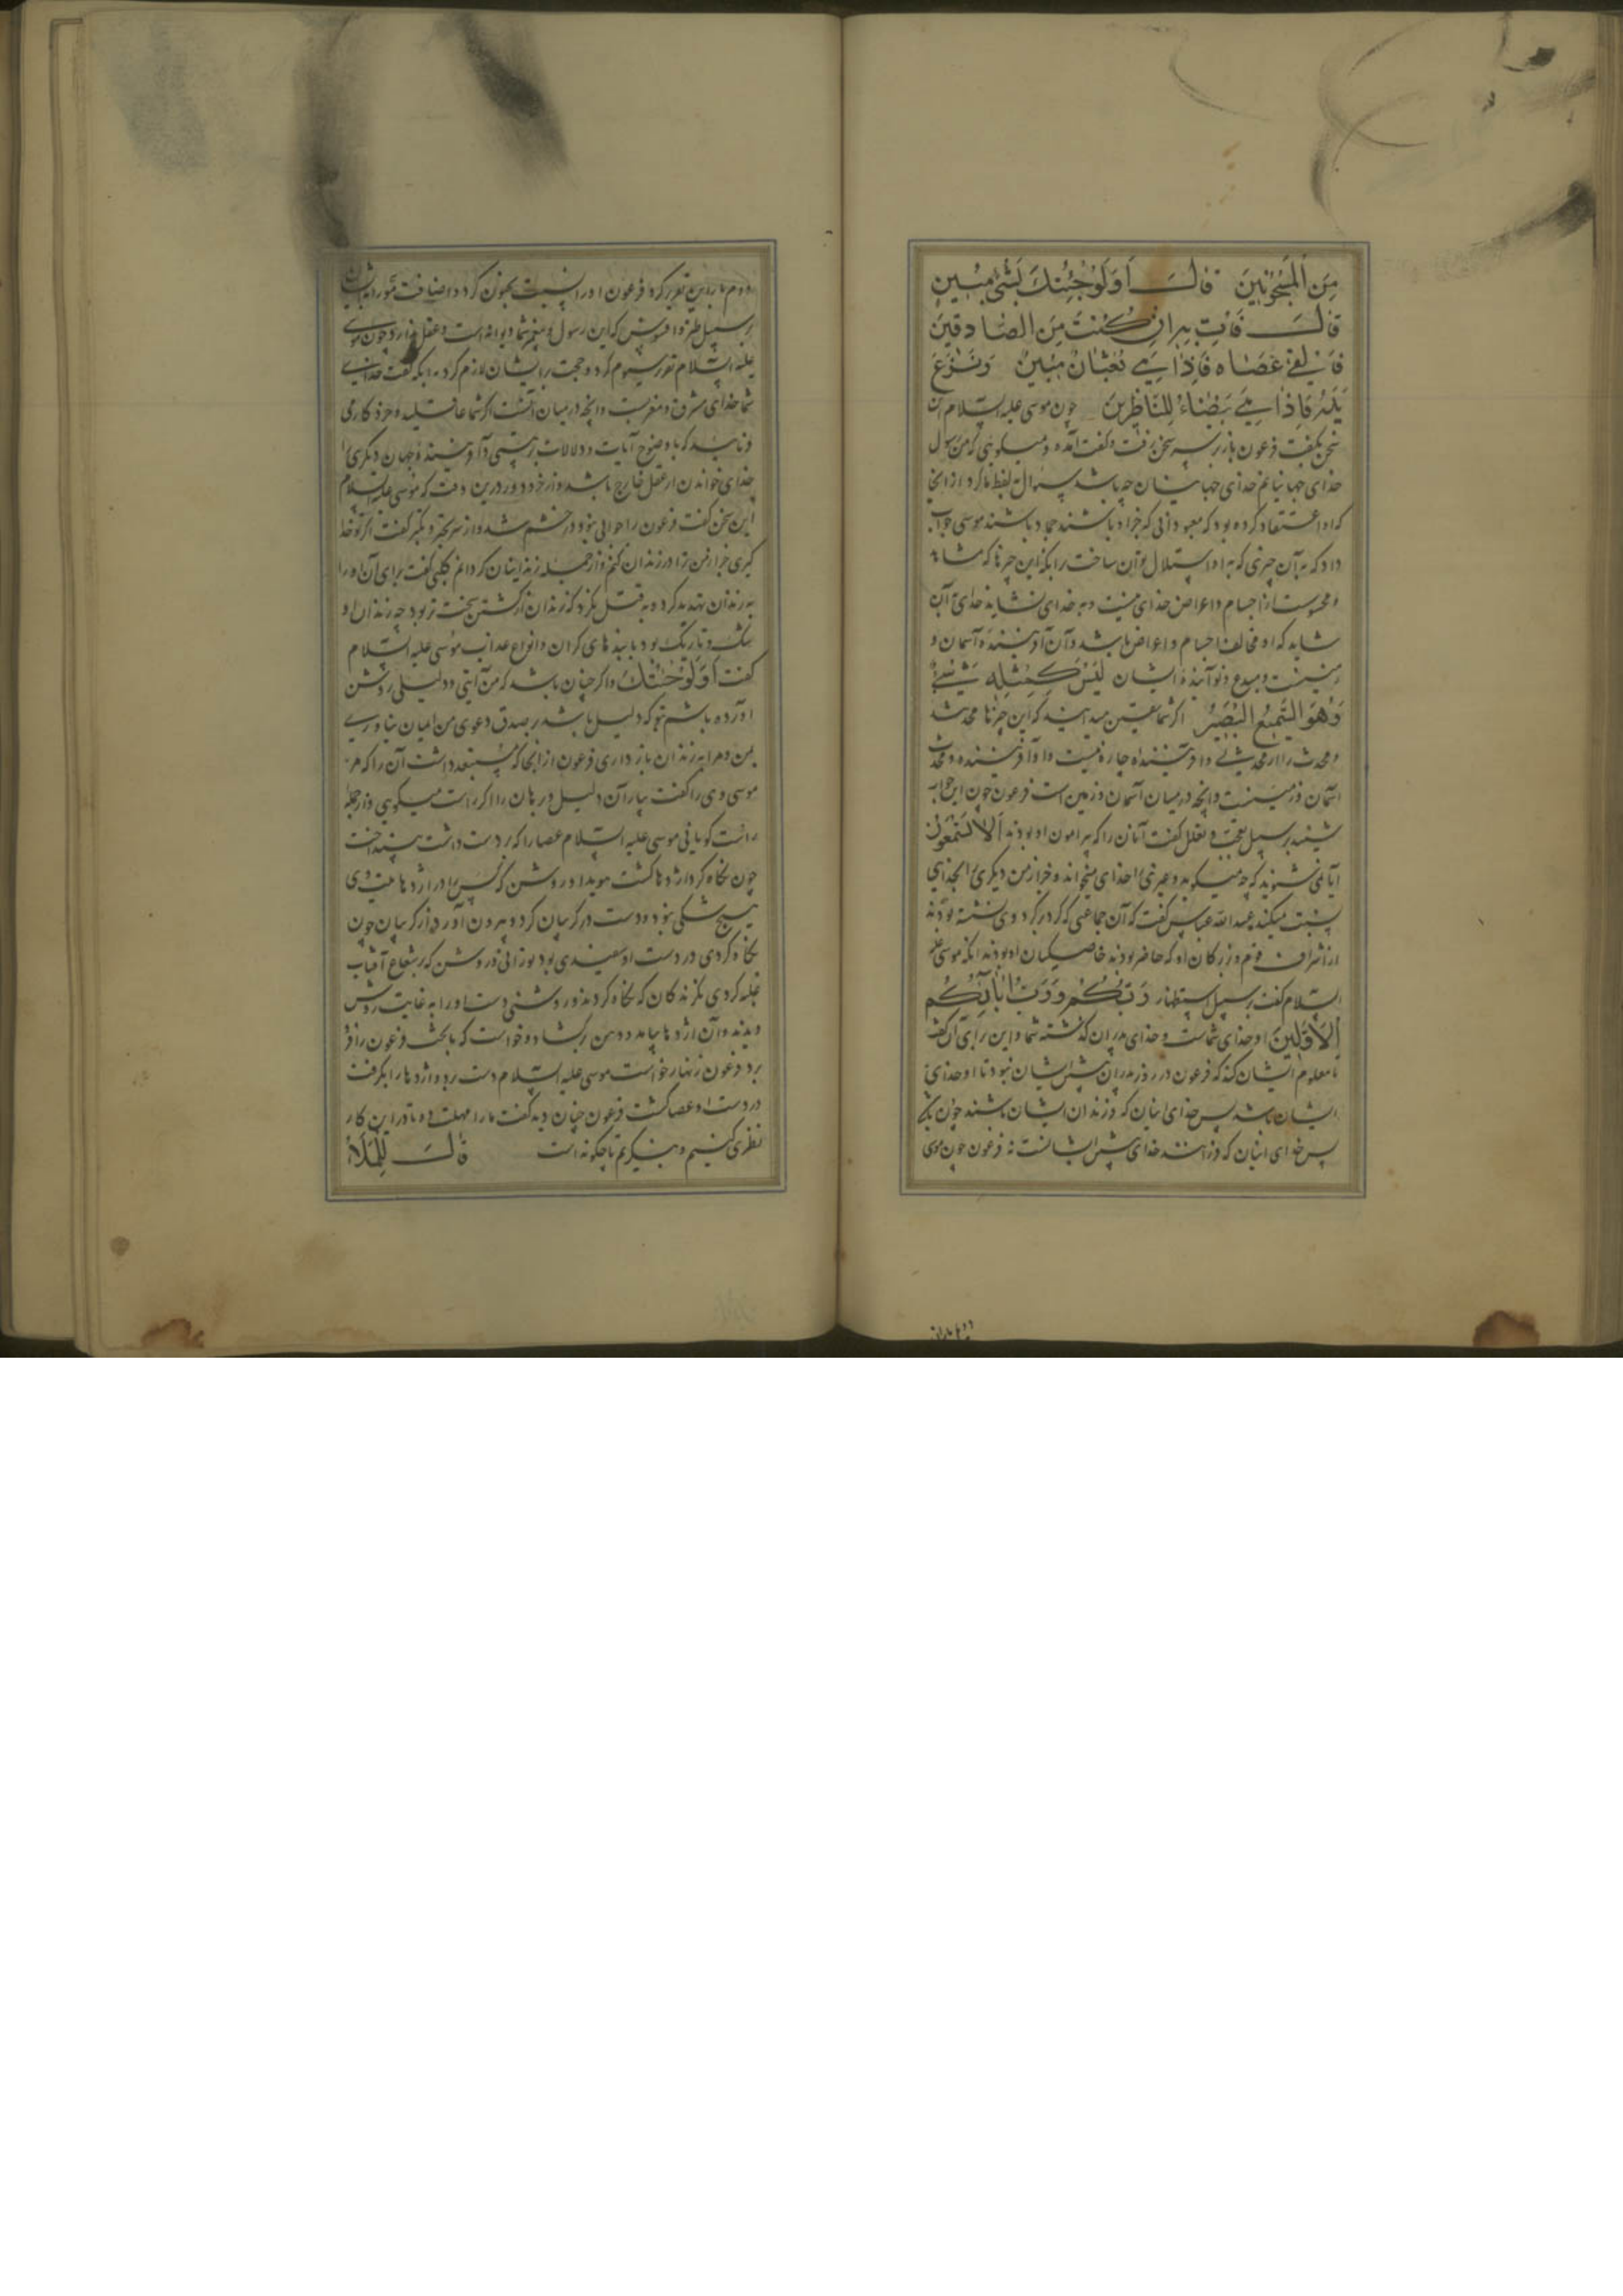 مِنَ الْمَسْجُونِينَ قَالَ أَوَلَوْ جِئْتُكَ بِشَيْءٍ مُبِينٍ
قَالَ فَأْتِ بِهِ إِنْ كُنْتَ مِنَ الصَّادِقِينَ
فَأَلْقَى عَصَاهُ فَإِذَا هِيَ ثُعْبَانٌ مُبِينٌ وَنَزَعَ
يَدَهُ فَإِذَا هِيَ بَيْضَاءُ لِلنَّاظِرِينَ چون موسی علیه السلام این
سخن بگفت فرعون باز بر سر سخن رفت و گفت آمده و میگویی که من رسول
خدای جهانیانم خدای جهانیان چه باشد سوال به لفظ ما کرد از آنجا
که او اعتقاد کرده بود که معبودانی که جز او باشند جماد باشند موسی جواب
داد که به آن چیزی که به او استدلال توان ساخت را بکه این چیزها که مشاهد
و محسوست از اجسام و اعراض خدای نیست و به خدای نشاید خدای آن
شاید که او مخالف اجسام و اعراض باشد و آن آفریننده آسمان و
زمینست و مبدع و نوآیننده ایشان لَيْسَ كَمِثْلِهِ شَيْءٌ
وَهُوَ السَّمِيعُ الْبَصِيرُ اگر شما یقین میدانید که این چیزها محدث
و محدث را از محدثی و آفریننده چاره نیست و او آفریننده و محدث
آسمان و زمینست و آنچه در میان آسمان و زمین است فرعون چون این جواب
شنید بر سبیل تعجب و تعلل گفت آنان را که پیرامون او بودند أَلَا تَسْتَمِعُونَ
آیا نمی شنوید که چه میگوید و غیر مرا خدای میخواند و جز از من دیگری را بخدای
نسبت میکند عبدالله عباس گفت که آن جماعتی که گرد بر گرد وی نشسته بودند
از اشراف قوم و بزرگان او که حاضر بودند خاصگیان او بودند آنگه موسی علیه
السلام گفت بر سبیل استظهار رَبُّكُمْ وَرَبُّ آبَائِكُمُ
الْأَوَّلِينَ او خدای شماست و خدای پدران گذشته شما و این برای آن گفت
تا معلوم ایشان کند که فرعون در روز پدران پیش ایشان نبود تا او خدای
ایشان باشد پس خدای اینان که فرزندان ایشان باشند چون
پس خدای اینان که خدای پیش نه فرعون چون موسی
دوم بار این تقریر کرد فرعون او را نسبت بجنون کرد و اضافت
بر سبیل طنز و افسوس که این رسول و پیغمبر شما دیوانه است و عقل ندارد چون موسی
علیه السلام تقریر سیوم کرد و حجت بر ایشان لازم کرد به آنکه گفت خدای
شما خدای مشرق و مغربست و آنچه در میان آنست اگر شما عاقلید و خرد کار می
فرمایید که با وضوح آیات و دلالات بر هستی آفریننده جهان دیگری را
خدای خواندن از عقل خارج باشد و از خرد دور درین وقت که موسی علیه السلام
این سخن گفت فرعون را جوابی نبود در خشم شد و از سر تجبر و تکبر گفت اگر تو خدا
گیری جز از من ترا در زندان کنم و از جمله زندانیان گردانم کلبی گفت برای آن او را
به زندان تهدید کرد و به قتل نکرد که زندان از کشتن سخت تر بود چه زندان او
تنگ و تاریک بود با بندهای گران و انواع عذاب موسی علیه السلام
گفت أَوَلَوْ جِئْتُكَ و اگر چنان باشد که من آیتی و دلیلی روشن
آورده باشم بتو که دلیل باشد بر صدق دعوی من ایمان نیاوری
بمن و مرا به زندان باز داری فرعون از آنجا که مستبعد داشت آن را که مر
موسی وی را گفت بیار آن دلیل و برهان را اگر راست میگویی و از جمله
راست گویانی موسی علیه السلام عصا را که در دست داشت بینداخت
چون نگاه کرد اژدها گشت هویدا و روشن که کس را در اژدهاییتی وی
هیچ شکی نبود و دست در گریبان کرد و بیرون آورد از گریبان چون
نگاه کردی در دست او سفیدی بود نورانی و روشن که بر شعاع آفتاب
غلبه کردی نگرندگان که نگاه کردند نور و روشنی دست او را به غایت روشن
دیدند و آن اژدها بیامد و دهن بگشاد و خواست که با تخت فرعون را فرو
برد فرعون زنهار خواست موسی علیه السلام دست برد و اژدها را بگرفت
در دست او عصا گشت فرعون چنان دید گفت ما را مهلت ده تا در این کار
نظری کنیم و بنگریم تا چگونه است قَالَ لِلْمَلَإِ